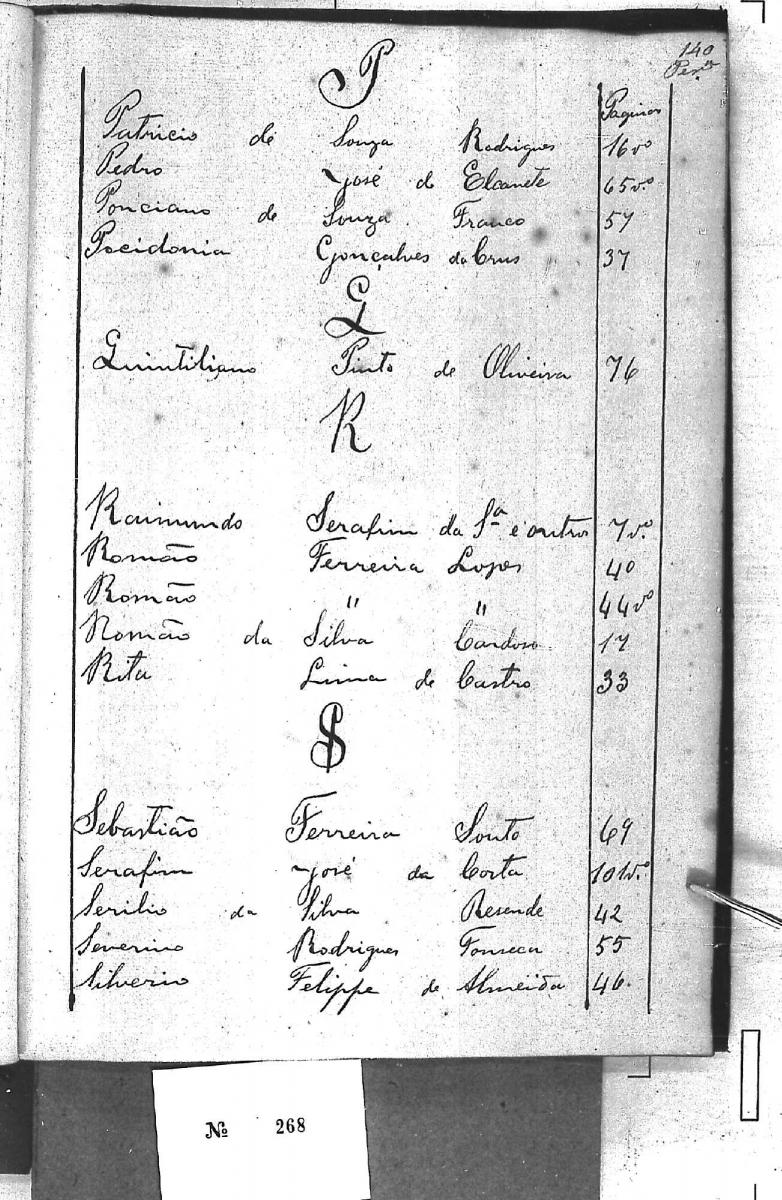 140
P
Paginas
Patricio de Souza Rodrigues 16vº
Pedro José de Elcanete 65vº
Ponciano de Souza Franco 57
Pocidonia Gonçalves da Crus 37
Q
Quintiliano Pinto de Oliveira 76
R
Raimundo Serafim da Sª e outros 7vº
Romão Ferreira Lopes 40
Romão " " 44vº
Romão da Silva Cardoso 17
Rita Lima de Castro 33
S
Sebastião Ferreira Souto 69
Serafim José da Costa 101vº
Serilio da Silva Resende 42
Severino Rodrigues Fonseca 55
Silverio Felippe de Almeida 46
Nº 268